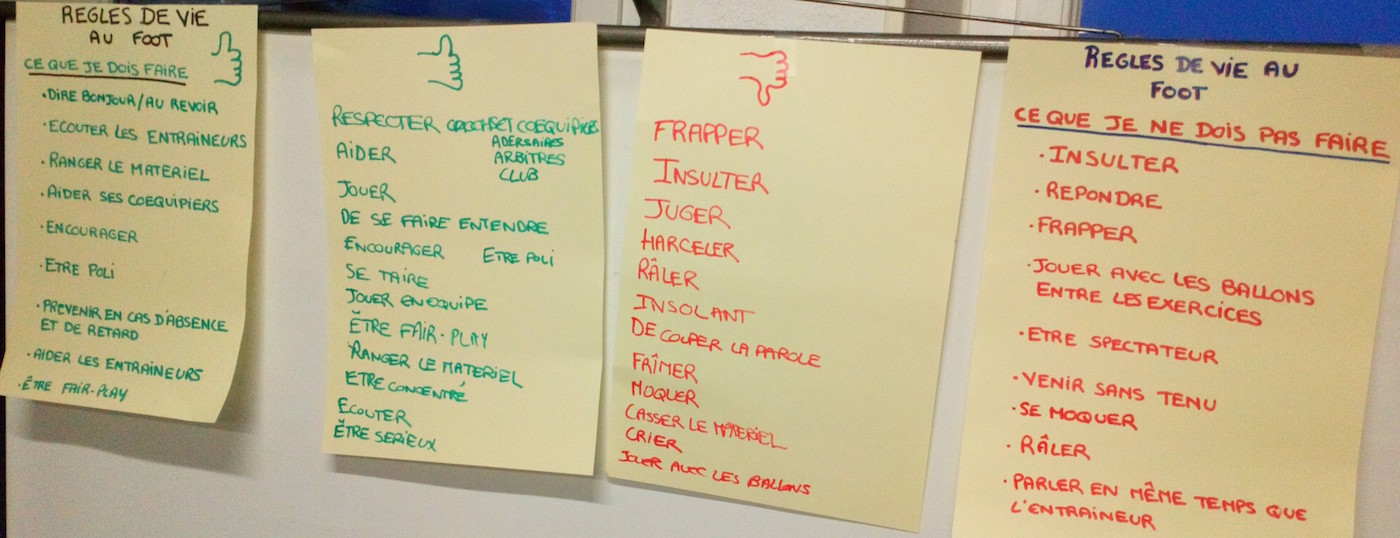 REGLES DE VIE
AU FOOT
CE QUE JE DOIS FAIRE
• DIRE BONJOUR/AU REVOIR
• ECOUTER LES ENTRAINEURS
• RANGER LE MATERIEL
• AIDER SES COEQUIPIERS
• ENCOURAGER
• ETRE POLI
• PREVENIR EN CAS D'ABSENCE
ET DE RETARD
• AIDER LES ENTRAINEURS
• ÊTRE FAIR-PLAY
RESPECTER COACHS ET COEQUIPIERS
ADERSAIRES
AIDER ARBITRES
CLUB
JOUER
DE SE FAIRE ENTENDRE
ENCOURAGER ETRE POLI
SE TAIRE
JOUER EN EQUIPE
ÊTRE FAIR-PLAY
RANGER LE MATERIEL
ETRE CONCENTRÉ
ECOUTER
ÊTRE SERIEUX
FRAPPER
INSULTER
JUGER
HARCELER
RÂLER
INSOLANT
DE COUPER LA PAROLE
FRÎMER
MOQUER
CASSER LE MATERIEL
CRIER
JOUER AVEC LES BALLONS
REGLES DE VIE AU
FOOT
CE QUE JE NE DOIS PAS FAIRE
• INSULTER
• REPONDRE
• FRAPPER
• JOUER AVEC LES BALLONS
ENTRE LES EXERCICES
• ETRE SPECTATEUR
• VENIR SANS TENU
• SE MOQUER
• RÂLER
• PARLER EN MÊME TEMPS QUE
L'ENTRAINEUR